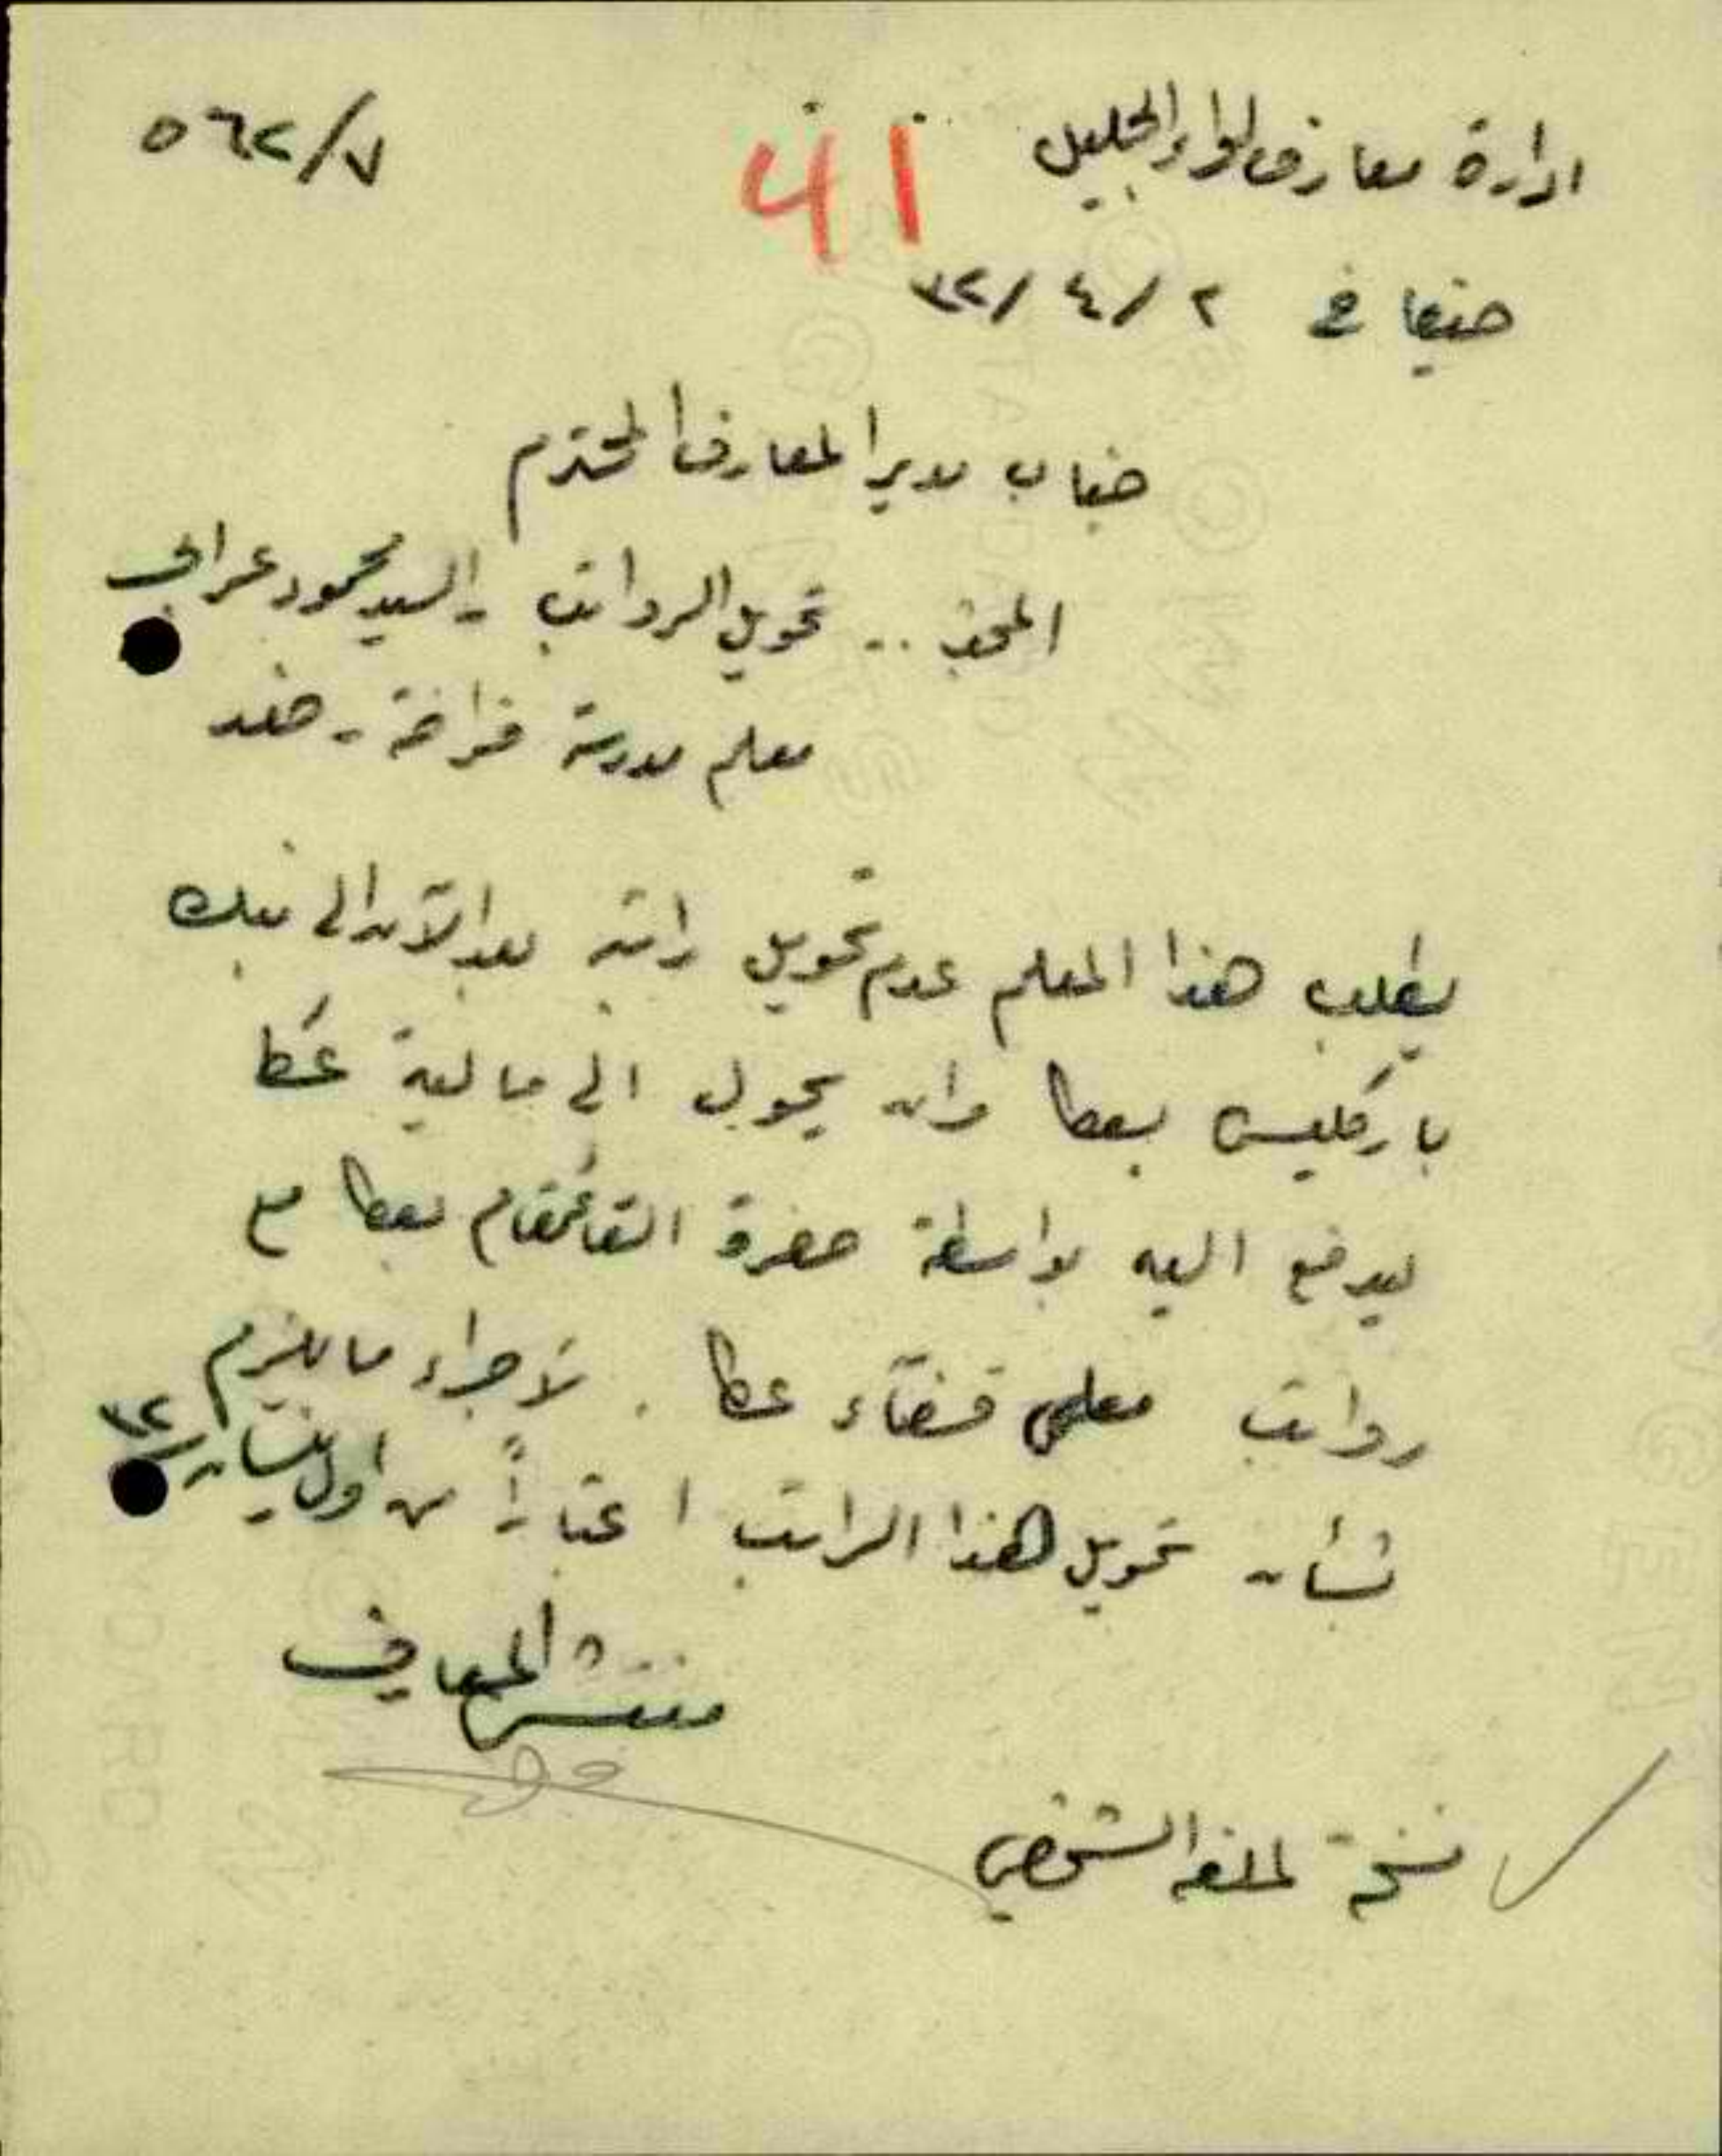 ادارة معارف لواء الجليل
٧/٥٦٢
41
حيفا في ٢/٤/٣٢
جناب مدير المعارف المحترم
المبحث .. تحويل الرواتب - السيد محمود عرابي
معلم مدرسة فراضة - صفد
يطلب هذا المعلم عدم تحويل راتبه بعد الآن الى بنك
باركليس بعكا وان يحول الى مالية عكا
ليدفع اليه بواسطة حضرة القائمقام بعكا مع
رواتب معلمي قضاء عكا . لاجراء ما يلزم
بشأن تحويل هذا الراتب اعتباراً من اول نيسان ٣٢
مفتش المعارف
نسخة لملفه الشخصي